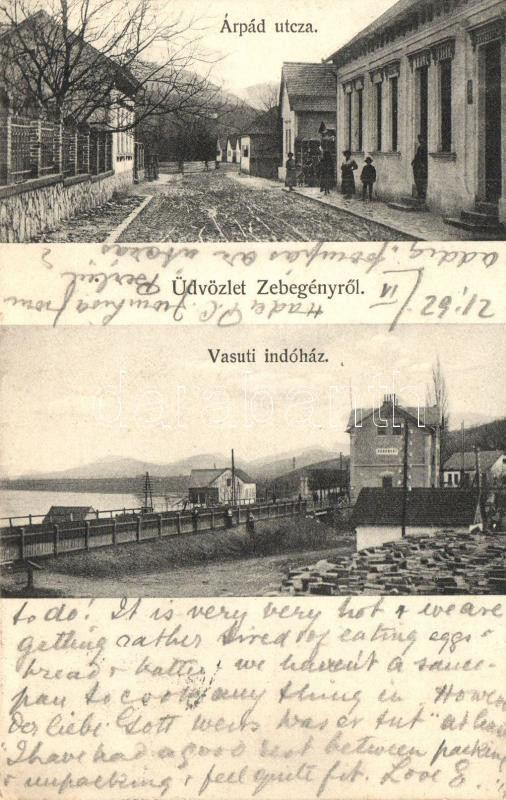 Árpád utcza.
Üdvözlet Zebegényről.
Vasuti indóház.
darabanth
to do! It is very very hot & we are
getting rather tired of eating eggs
bread & butter, we haven't a sauce-
pan to cook any thing in. Howev
der liebe Gott weiss was er tut" at least
"I have had a good rest between packing
& unpacking & feel quite fit. Love E.